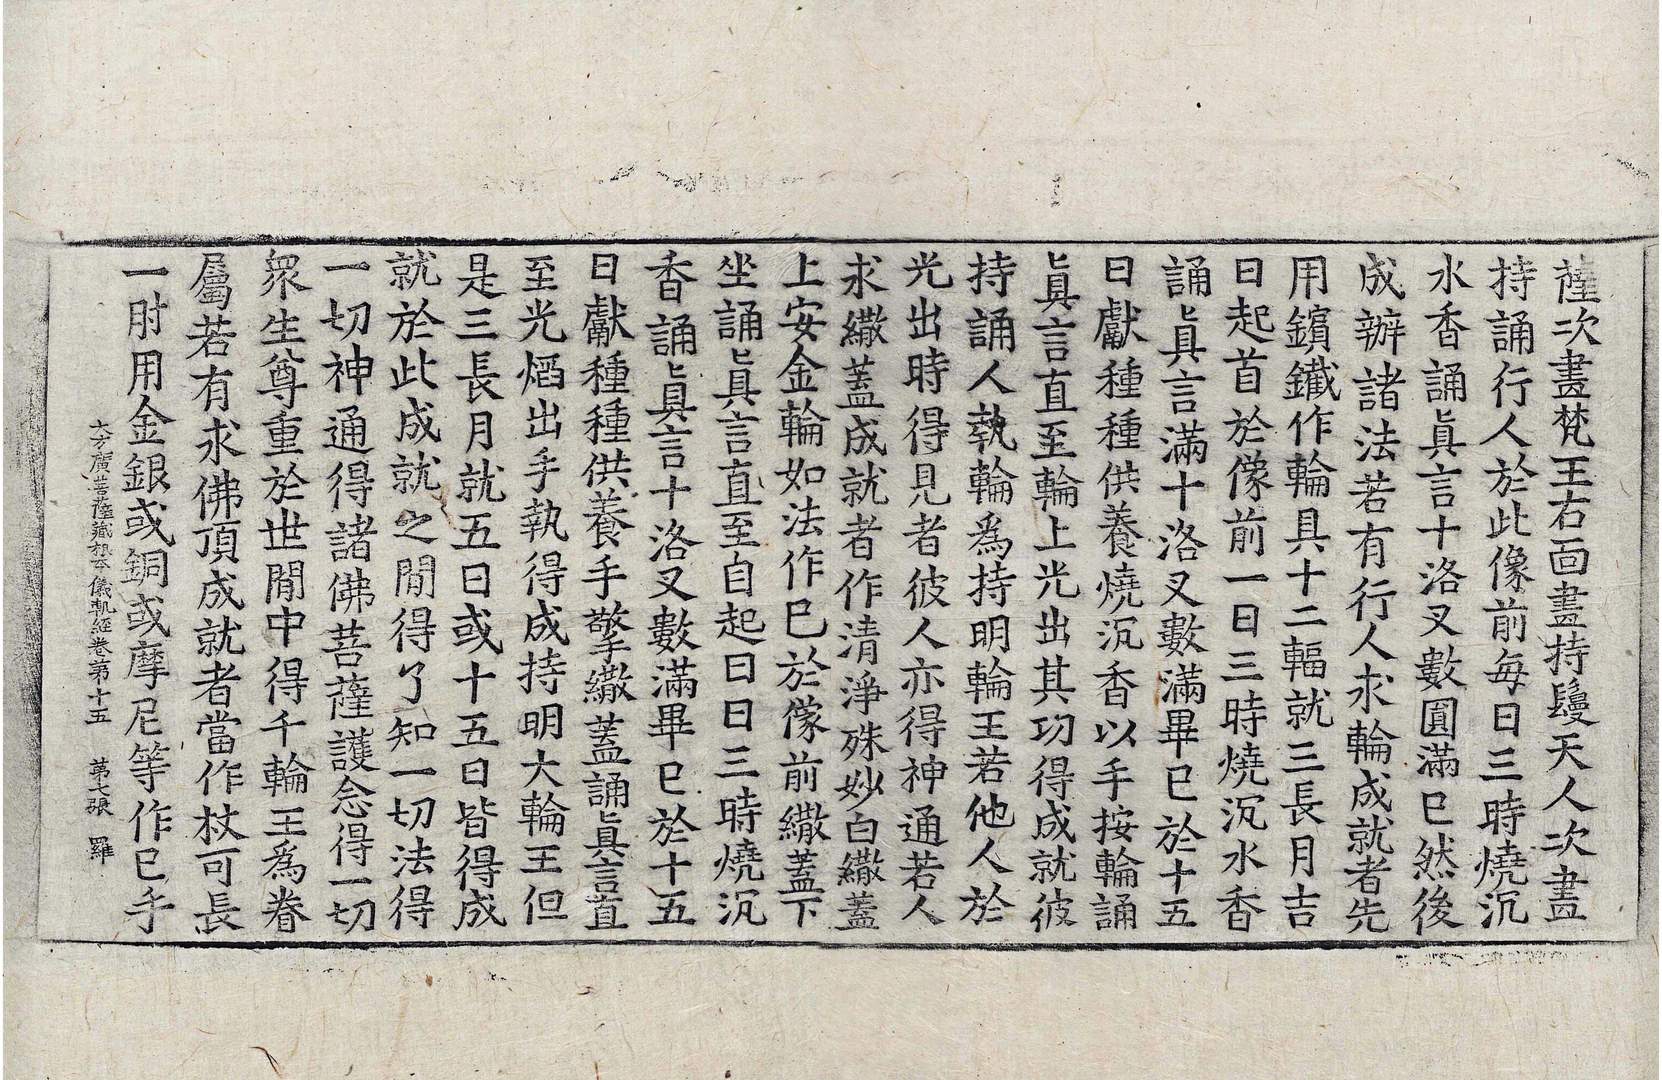 薩次畫梵王右面畫持鬘天人次畫
持誦行人於此像前每日三時燒沉
水香誦眞言十洛叉數圓滿已然後
成辦諸法若有行人求輪成就者先
用鑌鐵作輪具十二輻就三長月吉
日起首於像前一日三時燒沉水香
誦眞言滿十洛叉數滿畢已於十五
日獻種種供養燒沉香以手按輪誦
眞言直至輪上光出其功得成就彼
持誦人執輪爲持明輪王若他人於
光出時得見者彼人亦得神通若人
求繖蓋成就者作清淨殊妙白繖蓋
上安金輪如法作已於像前繖蓋下
坐誦眞言直至自起日日三時燒沉
香誦眞言十洛叉數滿畢已於十五
日獻種種供養手擎繖蓋誦眞言直
至光熖出手執得成持明大輪王但
是三長月就五日或十五日皆得成
就於此成就之閒得了知一切法得
一切神通得諸佛菩薩護念得一切
衆生尊重於世閒中得千輪王爲眷
屬若有求佛頂成就者當作杖可長
一肘用金銀或銅或摩尼等作已手
大方廣菩薩藏根本儀軌經卷第十五 第七張 羅